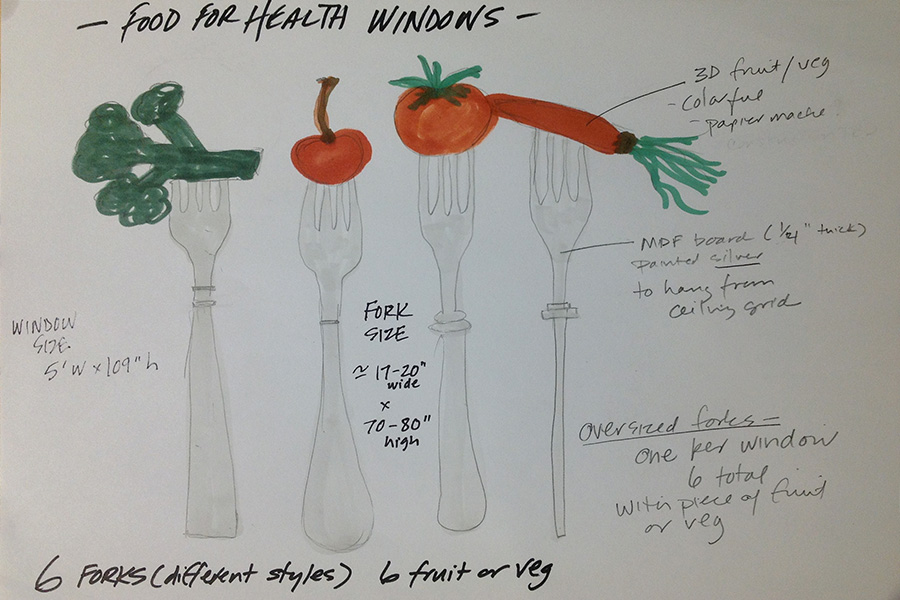 — FOOD FOR HEALTH WINDOWS —
3D fruit/veg
- colorful
- papier mache
MDF board (1/4" thick)
painted silver
to hang from
ceiling grid
WINDOW
SIZE.
5' W x 109" h
FORK
SIZE
≈ 17-20"
wide
x
70-80"
high
oversized forks —
one per window
6 total
with piece of fruit
or veg
6 FORKS (different styles) 6 fruit or veg